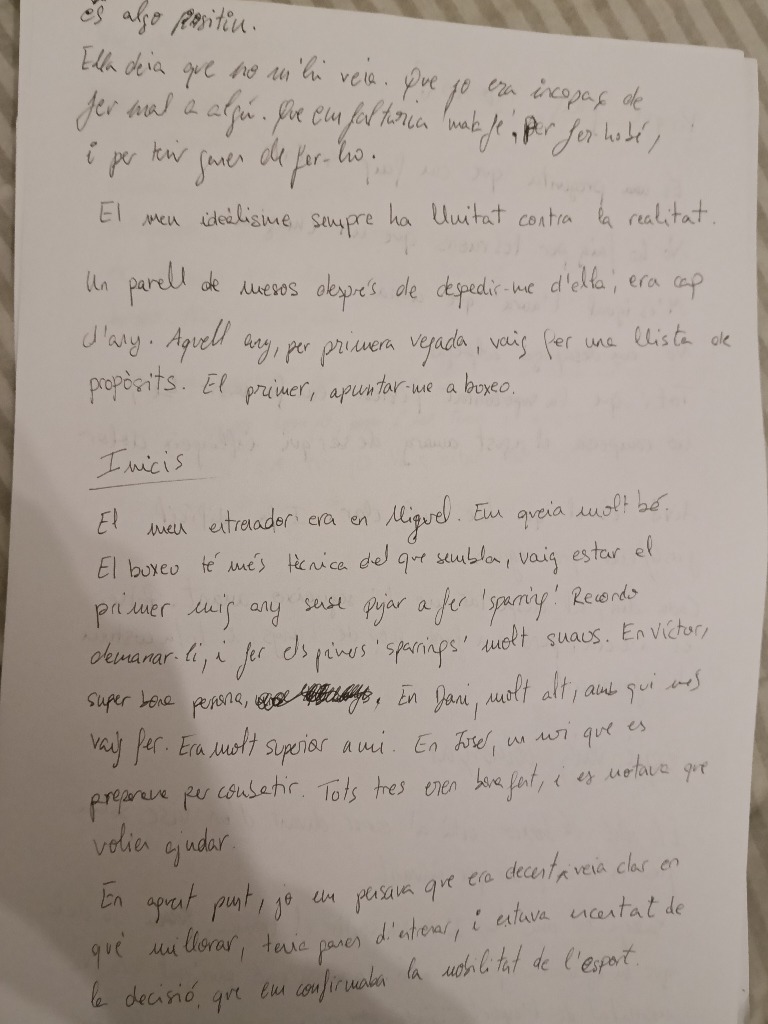 és algo positiu.
Ella deia que no m'hi veia. Que jo era incapaç de
fer mal a algú. Que em faltaria 'mala fe', per fer-ho bé,
i per tenir ganes de fer-ho.
El meu idealisme sempre ha lluitat contra la realitat.
Un parell de mesos després de despedir-me d'ella, era cap
d'any. Aquell any, per primera vegada, vaig fer una llista de
propòsits. El primer, apuntar-me a boxeo.
Inicis
El meu entrenador era en Miguel. Em queia molt bé.
El boxeo té més tècnica del que sembla, vaig estar el
primer mig any sense pujar a fer 'sparring'. Recordo
demanar-li, i fer els primers 'sparrings' molt suaus. En Víctor,
super bona persona, En Dani, molt alt, amb qui més
vaig fer. Era molt superior a mi. En Josef, un noi que es
preparava per combatir. Tots tres eren bona gent, i es notava que
volien ajudar.
En aquest punt, jo em pensava que era decent, veia clar en
què millorar, tenia ganes d'entrenar, i estava encantat de
la decisió, que em confirmaba la nobilitat de l'esport.